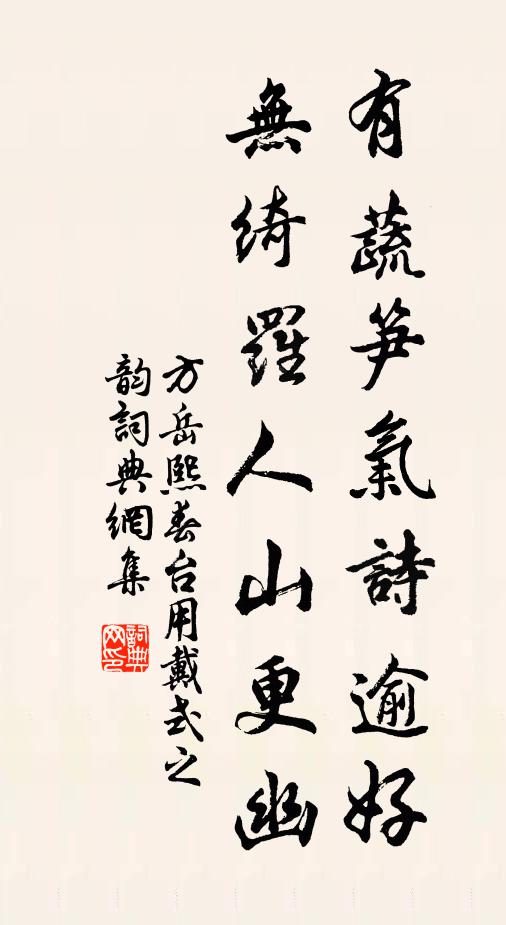 有蔬笋氣詩逾好
無綺羅人山更幽
方岳熙春台用戴式之
韵詞典網集
詞典网印